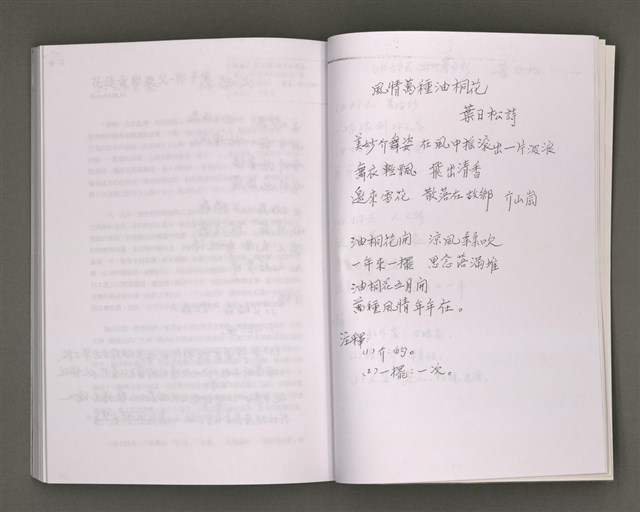 風情萬種油桐花
葉日松詩
美妙介舞姿 在風中搖滾出一片波浪
舞衣輕飄 飛出清香
遠來雪花 散落在故鄉 介山崗
油桐花開 涼風柔柔吹
一年來一擺 思念落滿堆
油桐花五月開
萬種風情年年在。
注釋:
(1)介:的。
(2)一擺:一次。